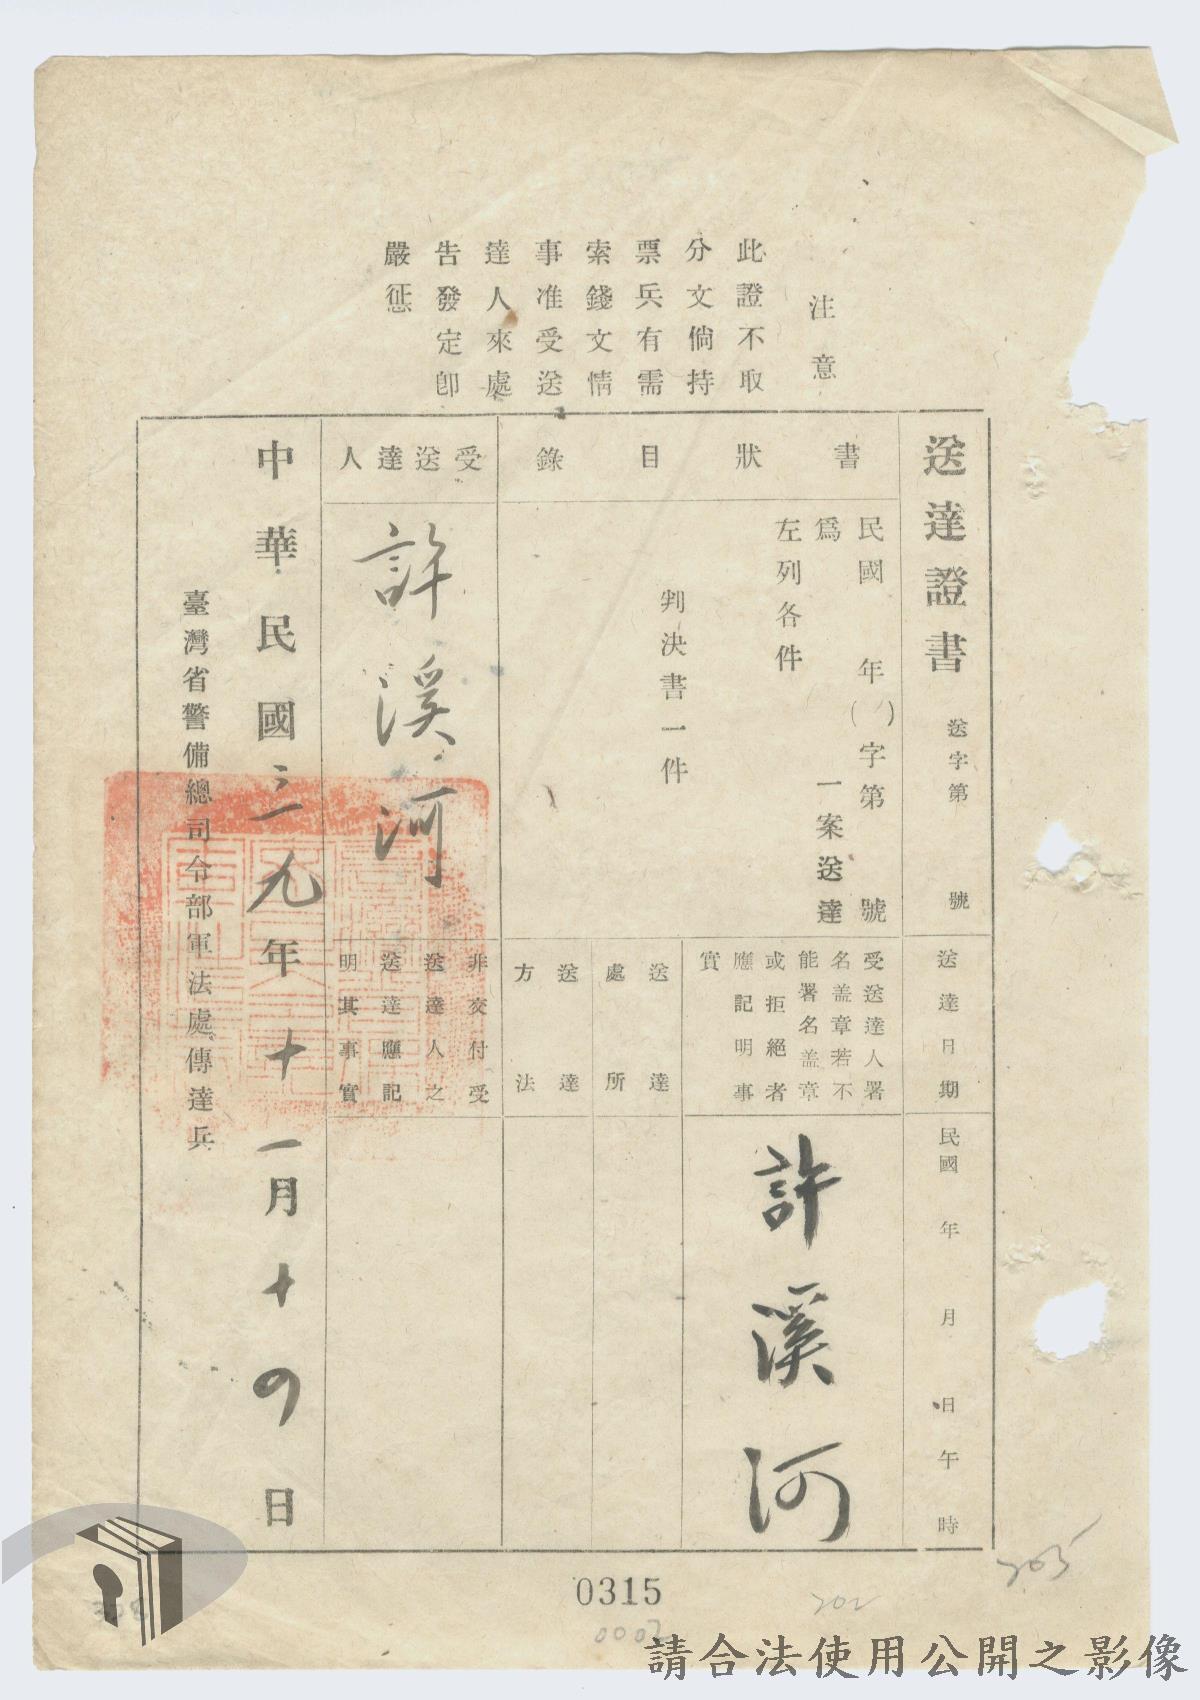 注意
此證不取
分文倘持
票兵有需
索錢文情
事准受送
達人來處
告發定卽
嚴惩
送達證書 送字第 號
書狀目錄
民國 年( )字第 號
爲 一案送達
左列各件
判決書一件
受送達人
許溪河
送達日期
民國 年 月 日午 時
受送達人署
名盖章若不
能署名盖章
或拒絕者
應記明事
實
許溪河
送達
處所
送達
方法
非交付受
送達人之
送達應記
明其事實
中華民國三九年十一月十四日
臺灣省警備總司令部軍法處傳達兵
0315
0002
202
205
請合法使用公開之影像